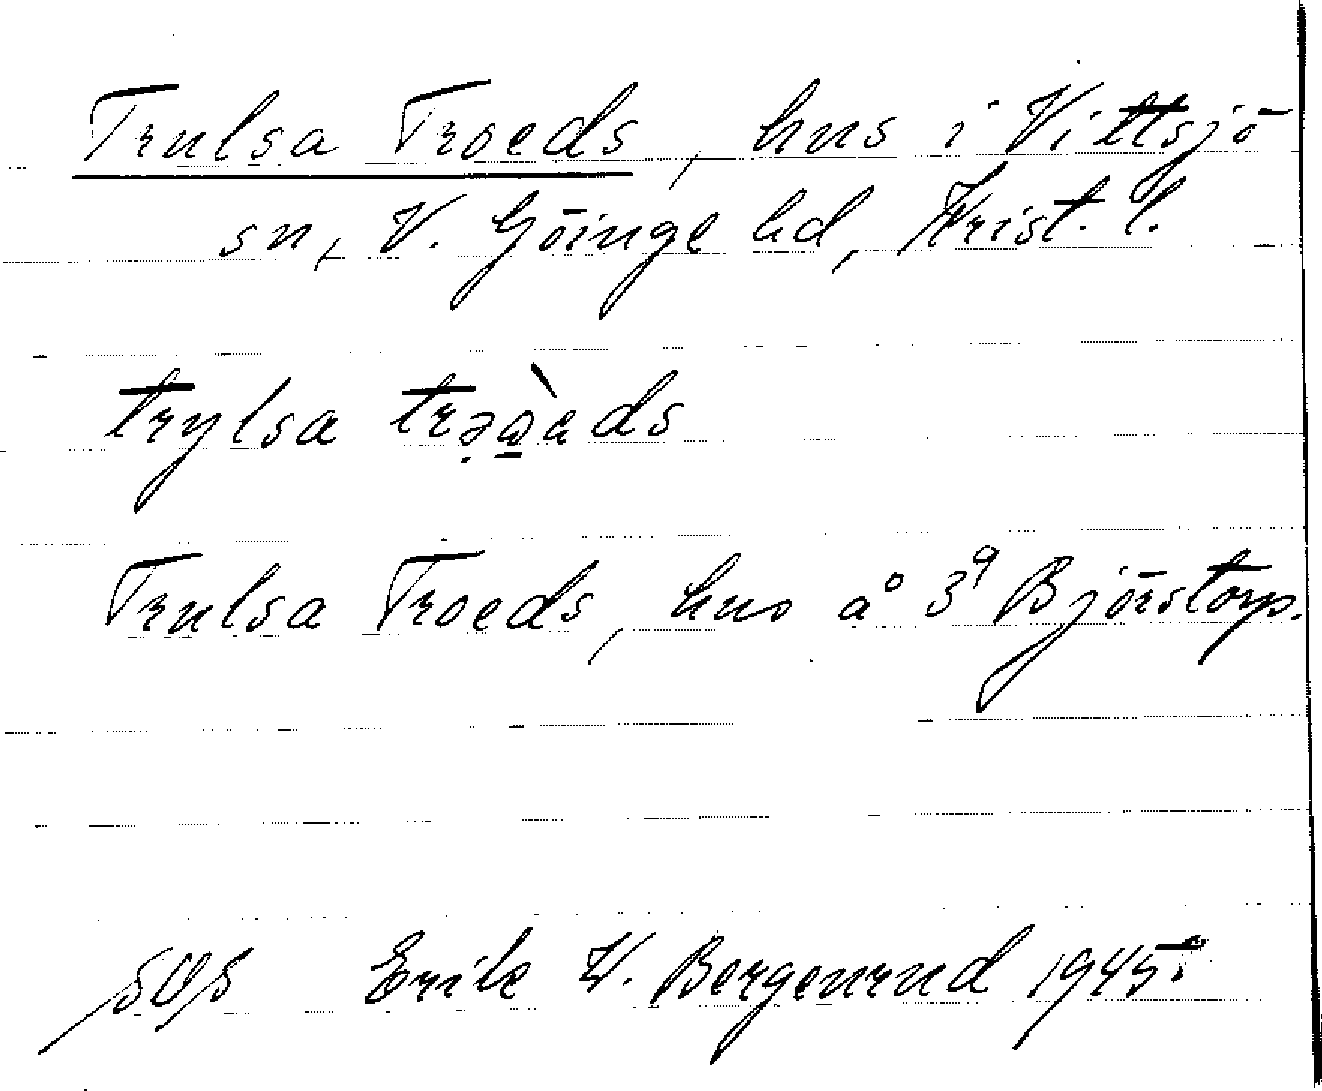 Trulsa Troeds, hus i Vittsjö
sn, V. Göinge hd, Krist. l.
trylsa
Trulsa Troeds, hus å 3⁹ Björstorp.
Erik W. Bergenrud 1945.